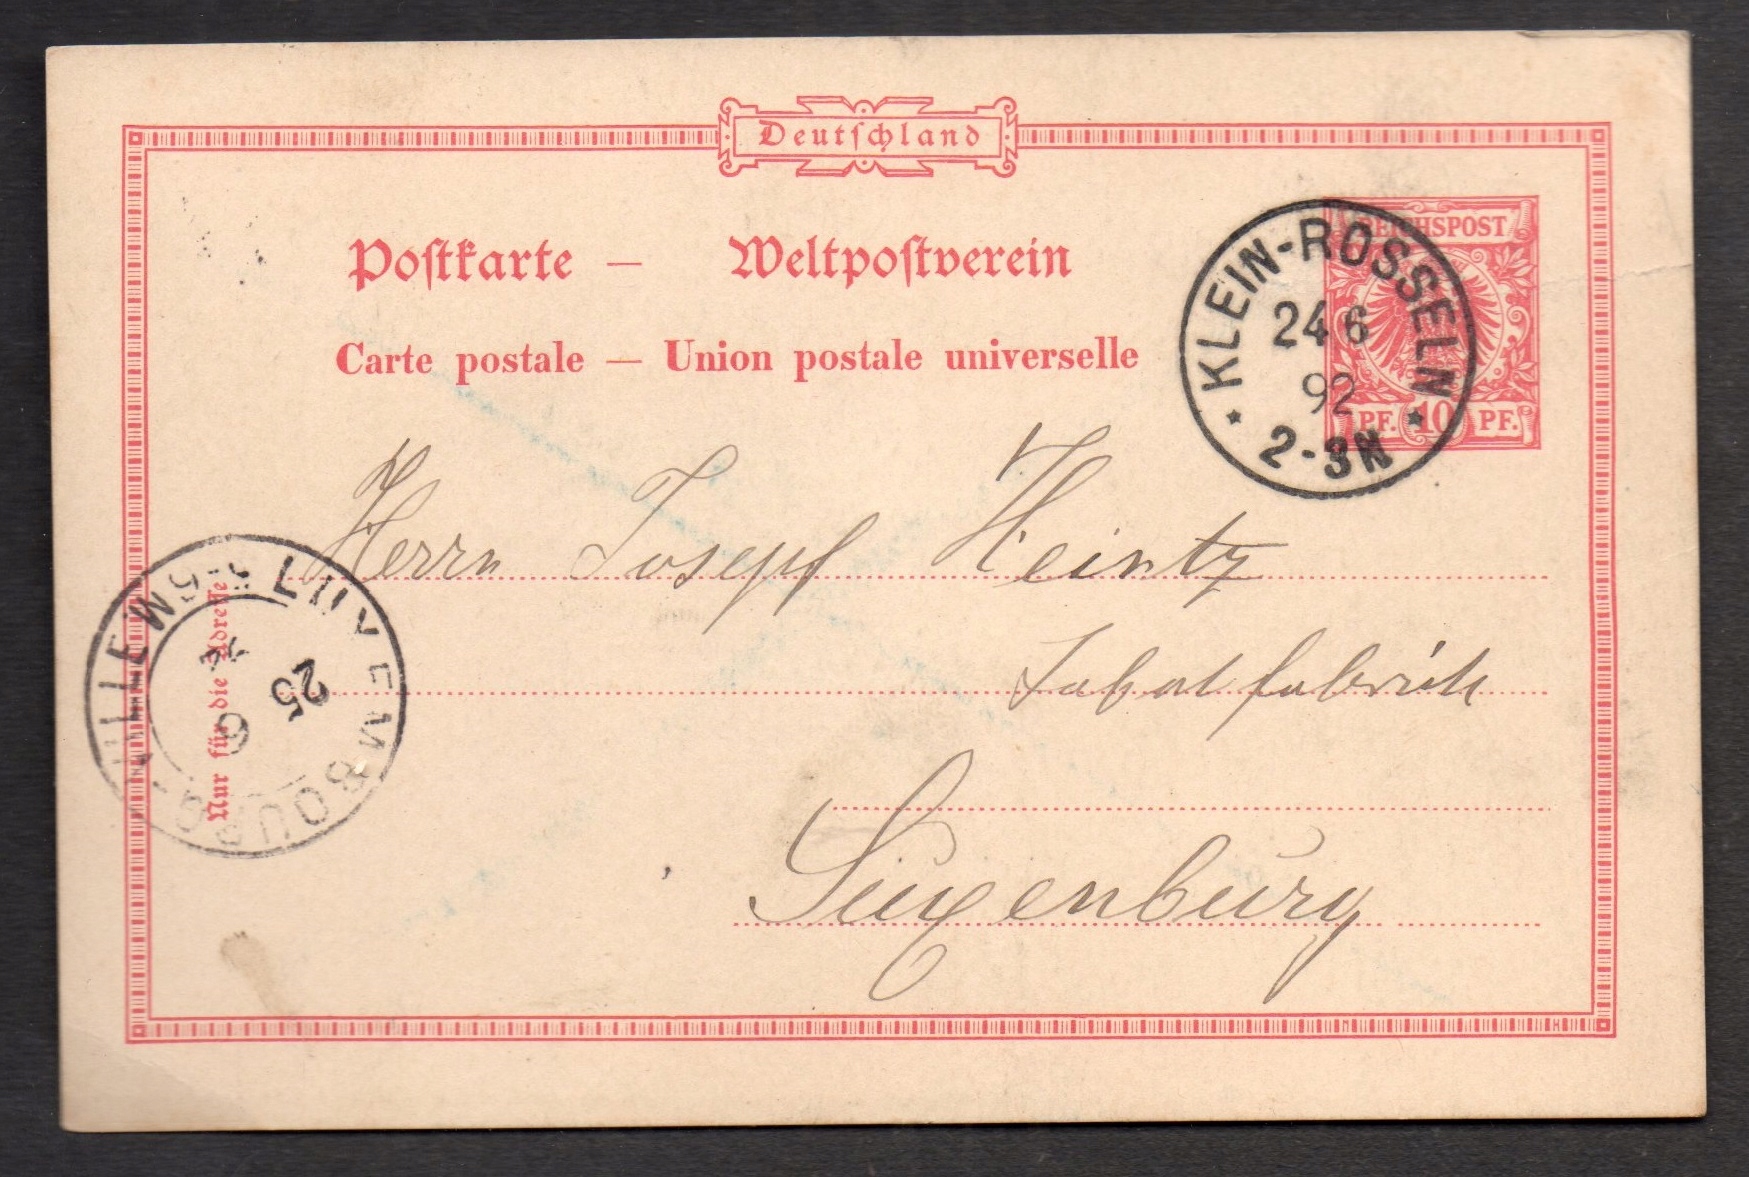 Deutschland
Postkarte — Weltpostverein
Carte postale — Union postale universelle
REICHSPOST
PF. 10 PF.
KLEIN-ROSSELN
24 6
92
2-3N
Herrn Joseph Heintz
Tabakfabrik
Luxenburg
Nur für die Adresse
LUXEMBOURG-VILLE
25
6